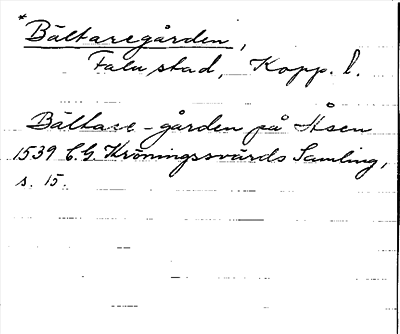 *Bältaregården,
Falu stad, Kopp. l.
Bältare-gården på Åsen
1539 C.G. Kröningssvärds Samling,
s. 15.